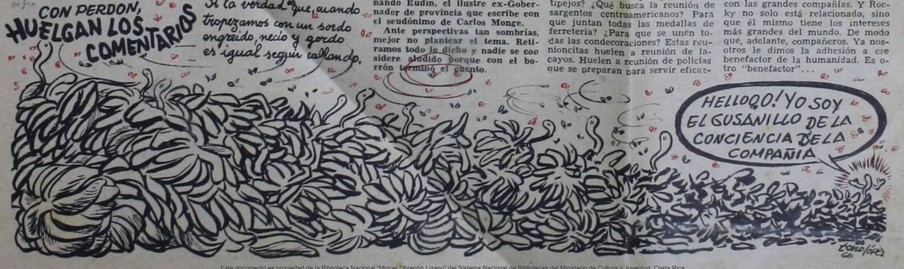 CON PERDON,
HUELGAN LOS
COMENTARIOS
Si la verdad que, cuando
tropezamos con un sordo
engreido, necio y gordo
es igual seguir callando,
nando Rudín, el ilustre ex-Gober-
nador de provincia que escribe con
el seudónimo de Carlos Monge.
Ante perspectivas tan sombrías,
mejor no plantear el tema. Reti-
ramos todo lo dicho y nadie se con
sidere aludido porque con el bo-
rrón terminó el cuento.
tipejos? ¿Qué busca la reunión de
sargentos centroamericanos? Para
que juntan todas las medallas de
ferretería? ¿Para que se unen to-
das las condecoraciones? Estas reu-
nioncitas huelen a reunión de la-
cayos. Huelen a reunión de policías
que se preparan para servir eficaz-
con las grandes compañías. Y Roc-
ky no solo está relacionado, sino
que él mismo tiene los intereses
más grandes del mundo. De modo
que, adelante, compañeros. Ya nos-
otros le dimos la adhesión a ese
benefactor de la humanidad. Es o-
tro "benefactor"...
HELLOQO! YO SOY
EL GUSANILLO DE LA
CONCIENCIA DE LA
COMPAÑIA
Este documento es propiedad de la Biblioteca Nacional "Miguel Obregón Lizano" del Sistema Nacional de Bibliotecas del Ministerio de Cultura y Juventud, Costa Rica